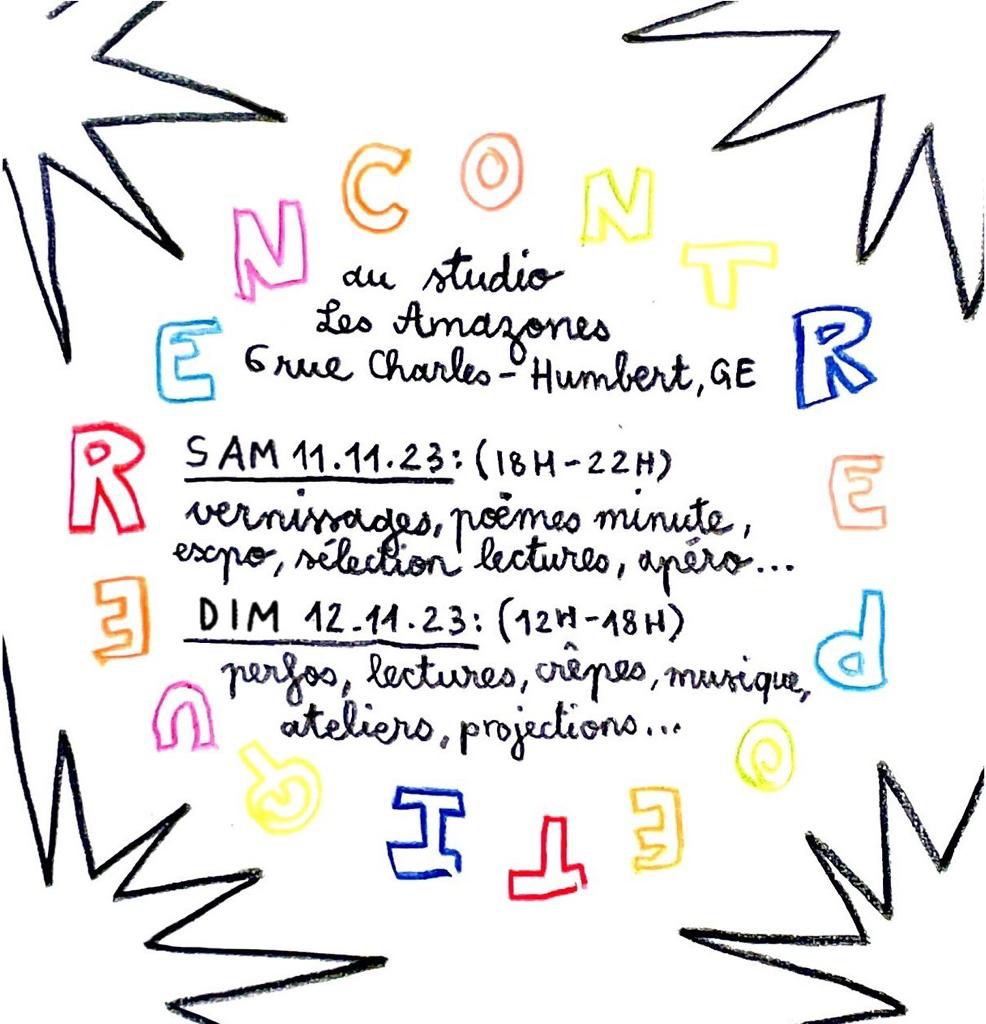 RENCONTRE POETIQUE
au studio
Les Amazones
6 rue Charles-Humbert, GE
SAM 11.11.23: (18H-22H)
vernissages, poèmes minute,
expo, sélection lectures, apéro...
DIM 12.11.23: (12H-18H)
perfos, lectures, crêpes, musique,
ateliers, projections...